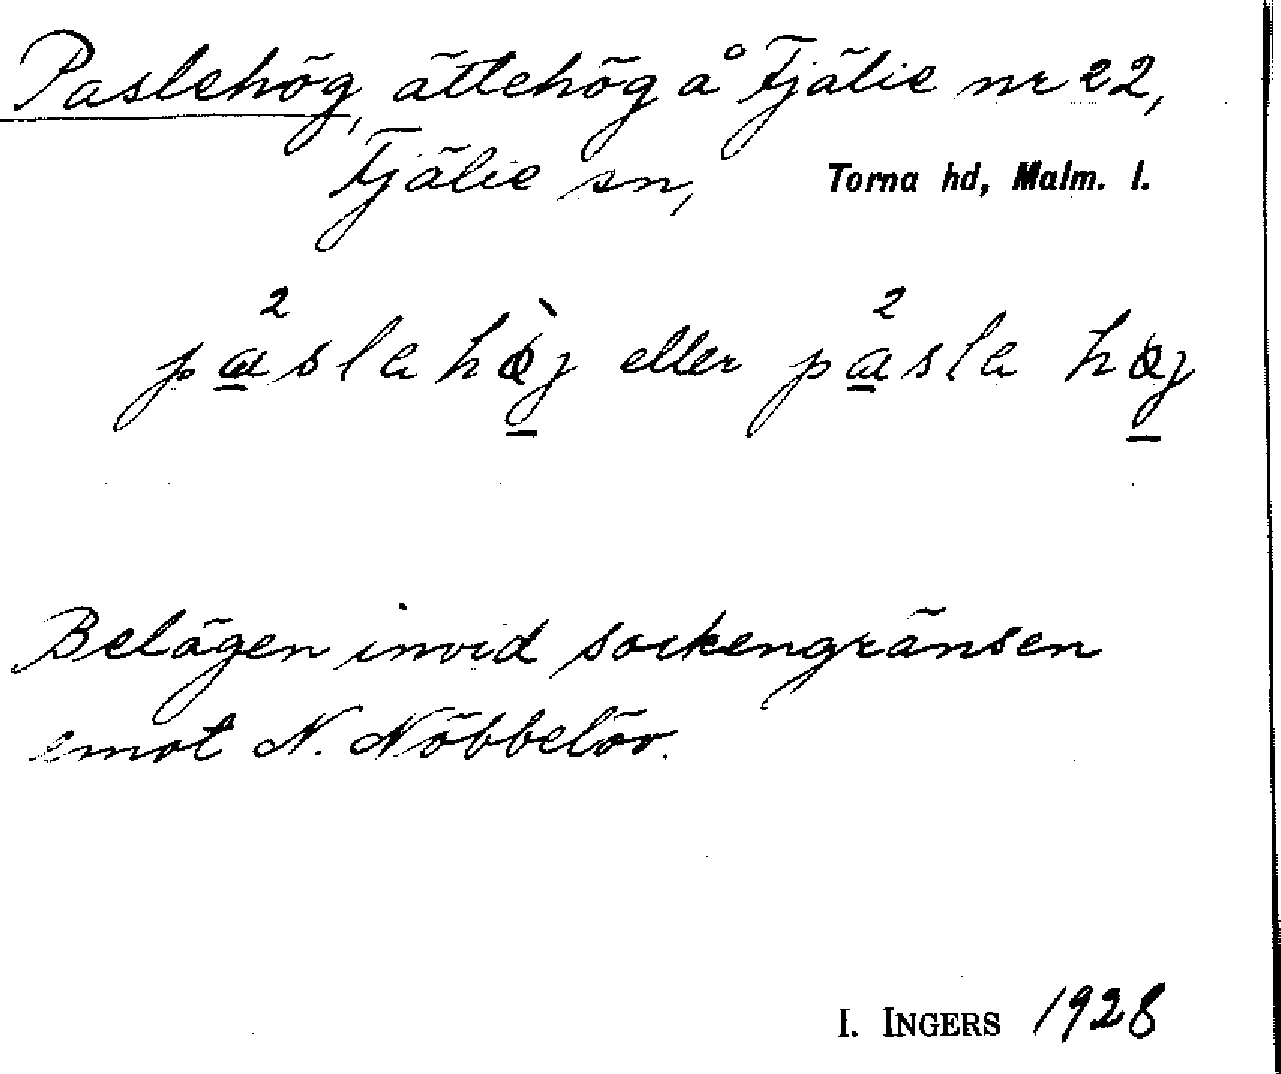 Paslehög, ättehög å Fjälie nr 22,
Fjälie sn, Torna hd, Malm. l.
pa²slahø̀j eller pa²sla høj
Belägen invid sockengränsen
emot N. Nöbbelöv.
I. INGERS 1928